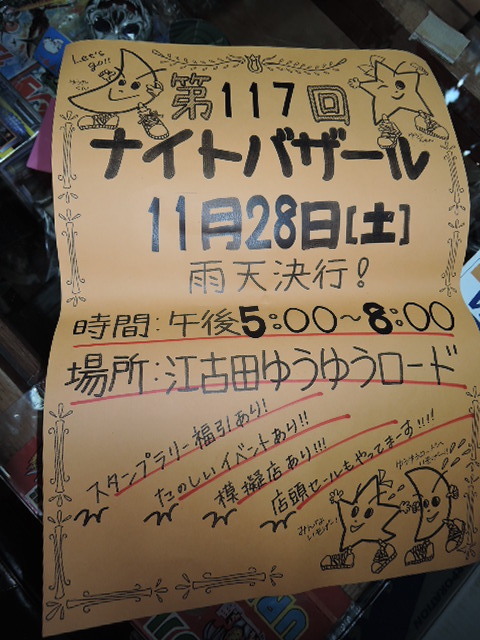 Let's go!!
第117回
ナイトバザール
11月28日[土]
雨天決行!
時間:午後5:00~8:00
場所:江古田ゆうゆうロード
スタンプラリー福引あり!
たのしいイベントあり!!
模擬店あり!!!
店頭セールもやってまーす!!!!